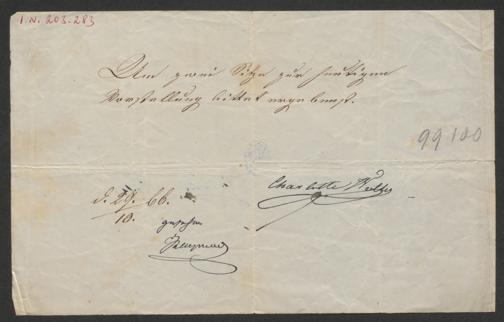 I.N. 203.283
Um zwei Sitze zur heutigen
Vorstellung bittet ergebenst.
99180
Charlotte Wolter
d. 29. 66.
10.
gesehen